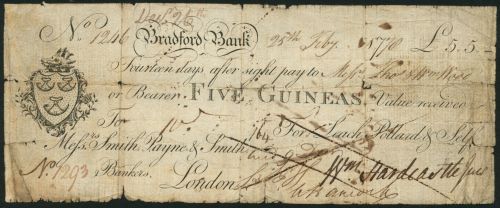 No. 1246 Bradford Bank 25th Feby. 1770 £ 5.5
Fourteen days after sight pay to Messrs.
or Bearer FIVE GUINEAS Value received
To For Leach Pollard & Self
Messrs. Smith Payne & Smith
No. 1293 Bankers. Wm. Hardcastle Junr
London